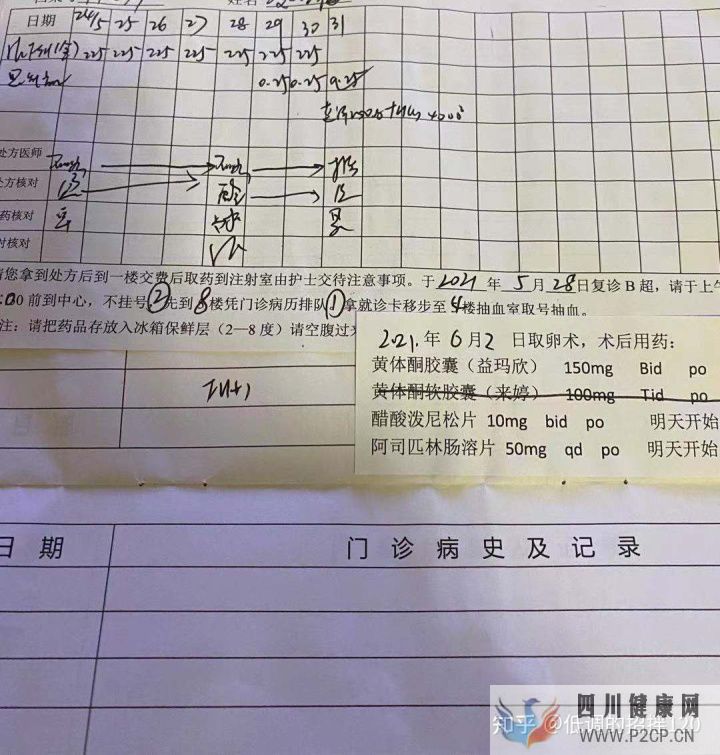 姓名
日期 24/5 25 26 27 28 29 30 31
225 225 225 225 225 225 225
0.25 0.25 0.25
处方医师
处方核对
药核对
对核对
请您拿到处方后到一楼交费后取药到注射室由护士交待注意事项。于2021年5月28日复诊B超，请于上午
:00前到中心，不挂号②先到8楼凭门诊病历排队①拿就诊卡移步至4楼抽血室取号抽血。
注：请把药品存放入冰箱保鲜层（2—8度）请空腹过来
2021.年6月2日取卵术，术后用药：
黄体酮胶囊（益玛欣） 150mg Bid po
黄体酮软胶囊（来婷） 100mg Tid po
醋酸泼尼松片 10mg bid po 明天开始
阿司匹林肠溶片 50mg qd po 明天开始
日期 门诊病史及记录
四川健康网
知乎 @低调的招摇120
WWW.P2CP.CN